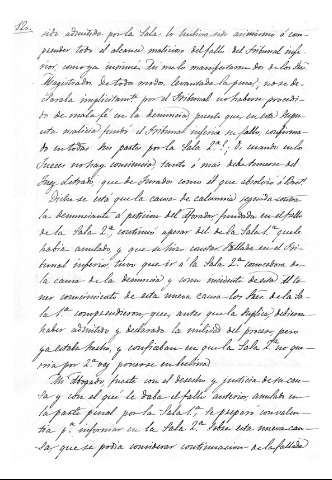 122.
sido admitida por la Sala lo hubiera sido asimismo á com-
prender todo el alcance malicioso del fallo del Tribunal infe-
rior, como ya insinué. Pues me lo manifestaron dos de los Sres
Magistrados. De todos modos, levantada la pena, no se de-
claraba implicitamte por el Tribunal no haberse procedi-
do de mala fé en la denuncia, puesto que en esta
malicia fundó el Tribunal inferior su fallo, confirma-
do en todas sus partes por la Sala 2ª? Y cuando en los
Jueces no hay conciencia, tanto ó mas debe temerse del
Juez Letrado, que de Jurados como el que absolvió á
Dicho se está que la causa de calumnia seguida contra
la denunciante á peticion del fundada en el fallo
de la Sala 2ª continuó apesar del de la Sala 1ª que le
habia anulado, y que se hizo constar. Fallada en el Tri-
bunal inferior, tuvo que ir á la Sala 2ª conocedora de
la causa de la denuncia y como incidente de esta. Al te-
ner conocimiento de esta nueva causa los Sres de la Sa-
la 1ª comprendieron que, antes que la súplica, debieron
haber admitido y declarado la nulidad del proceso; pero
ya estaba hecho, y confiaban en que la Sala 2ª no que-
rria por 2ª vez ponerse en
Mi Abogado, fuerte con el derecho y justicia de su cau-
sa y con el que le daba el fallo anterior, anulado en
la parte penal por la Sala 1ª, se preparó con valen-
tia pª informar en la Sala 2ª sobre esta nueva cau-
sa, que se podia considerar continuacion de la fallada